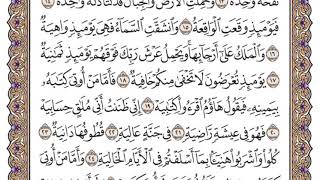 نَفْخَةٌ وَٰحِدَةٌ ١٣ وَحُمِلَتِ ٱلْأَرْضُ وَٱلْجِبَالُ فَدُكَّتَا دَكَّةً وَٰحِدَةً ١٤
فَيَوْمَئِذٍ وَقَعَتِ ٱلْوَاقِعَةُ ١٥ وَٱنشَقَّتِ ٱلسَّمَآءُ فَهِىَ يَوْمَئِذٍ وَاهِيَةٌ ١٦
وَٱلْمَلَكُ عَلَىٰٓ أَرْجَآئِهَا وَيَحْمِلُ عَرْشَ رَبِّكَ فَوْقَهُمْ يَوْمَئِذٍ ثَمَٰنِيَةٌ
١٧ يَوْمَئِذٍ تُعْرَضُونَ لَا تَخْفَىٰ مِنكُمْ خَافِيَةٌ ١٨ فَأَمَّا مَنْ أُوتِىَ كِتَٰبَهُۥ
بِيَمِينِهِۦ فَيَقُولُ هَآؤُمُ ٱقْرَءُوا۟ كِتَٰبِيَهْ ١٩ إِنِّى ظَنَنتُ أَنِّى مُلَٰقٍ حِسَابِيَهْ
٢٠ فَهُوَ فِى عِيشَةٍ رَّاضِيَةٍ ٢١ فِى جَنَّةٍ عَالِيَةٍ ٢٢ قُطُوفُهَا دَانِيَةٌ ٢٣
كُلُوا۟ وَٱشْرَبُوا۟ هَنِيٓـًٔۢا بِمَآ أَسْلَفْتُمْ فِى ٱلْأَيَّامِ ٱلْخَالِيَةِ ٢٤ وَأَمَّا مَنْ أُوتِىَ